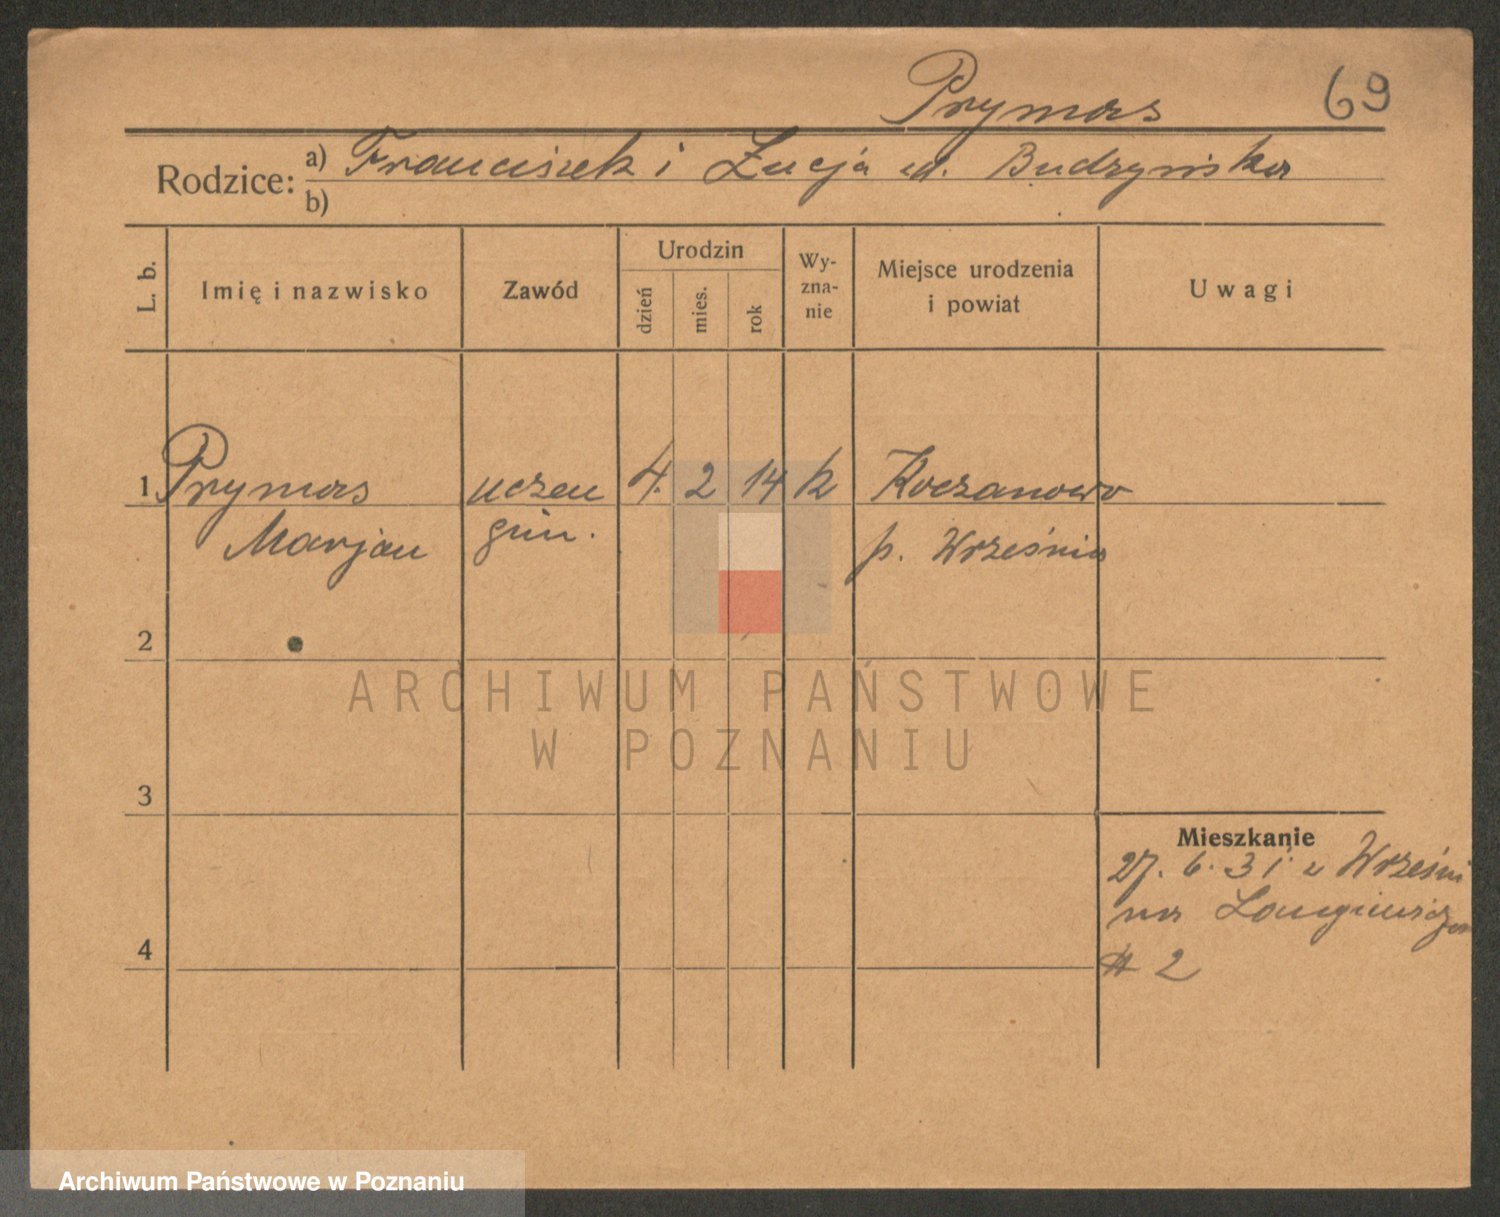 Prymas 69
Rodzice: a) Franciszek i Łucja ur. Budzyńska
b)
L. b. Imię i nazwisko Zawód Urodzin dzień mies. rok Wy-zna-nie Miejsce urodzenia i powiat Uwagi
1 Prymas uczeń 4. 2 14 k Koczanowo
Marjan gim. p. Września
2
ARCHIWUM PAŃSTWOWE
W POZNANIU
3
Mieszkanie
27. 6. 31 z Wrześni
na Langiewicza
4
# 2
Archiwum Państwowe w Poznaniu